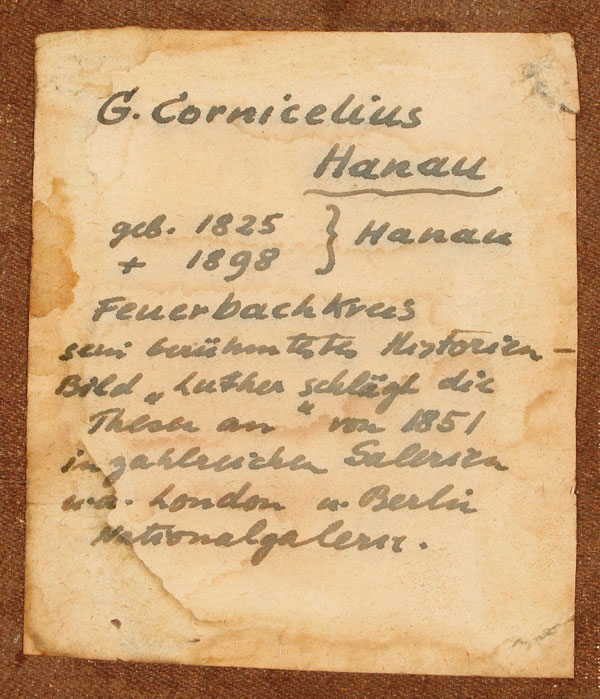 G. Cornicelius
Hanau
geb. 1825 } Hanau
+ 1898
Feuerbachkreis
sein berühmtestes Historien-
Bild „Luther schlägt die
Thesen an“ von 1851
in zahlreichen Galerien
u.a. London u. Berlin
Nationalgalerie.